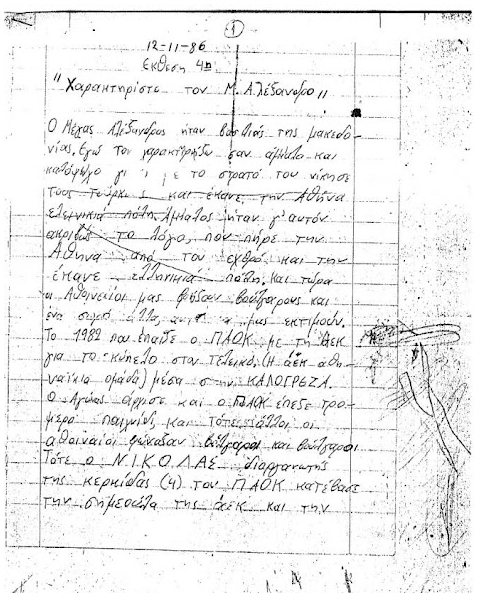 1
12-11-86
Εκθεση 4η
"Χαρακτηρίστε τον Μ. Αλέξανδρο"
Ο Μέγας Αλέξανδρος ήταν βασιλιάς της μακεδο-
νίας. Εγώ τον χαρακτιρήζω σαν άμματο και
με το στρατό του νίκησε
τους και έκανε την Αθήνα
πόλη. ήταν γ' αυτόν
ακριβώς το λόγο, που πήρε την
Αθήνα από τον εχθρό και την
έκανε πόλη. Και τώρα
οι Αθηνεείοι μας βούλγαρους και
ένα άλλα, μας εκτιμούν.
Το 1982 που έπαιξε ο ΠΑΟΚ με τη ΑΕΚ
για το κύπελο στον τελικό. (Η άεκ αθη-
ναίκια ομάδα) μέσα στην ΚΑΛΟΓΡΕΖΑ.
Ο Αγώνας άρχισε και ο ΠΑΟΚ έπεξε τρο-
μερό παιχνίδι, και οι
αθηναίοι φώναξαν βούλγαροι και βούλγαροι
Τότε ο ΝΙΚΟΛΑΣ διοργανωτής
της κερκίδας (4) του ΠΑΟΚ κατέβασε
την σημεούλα της άεκ και την